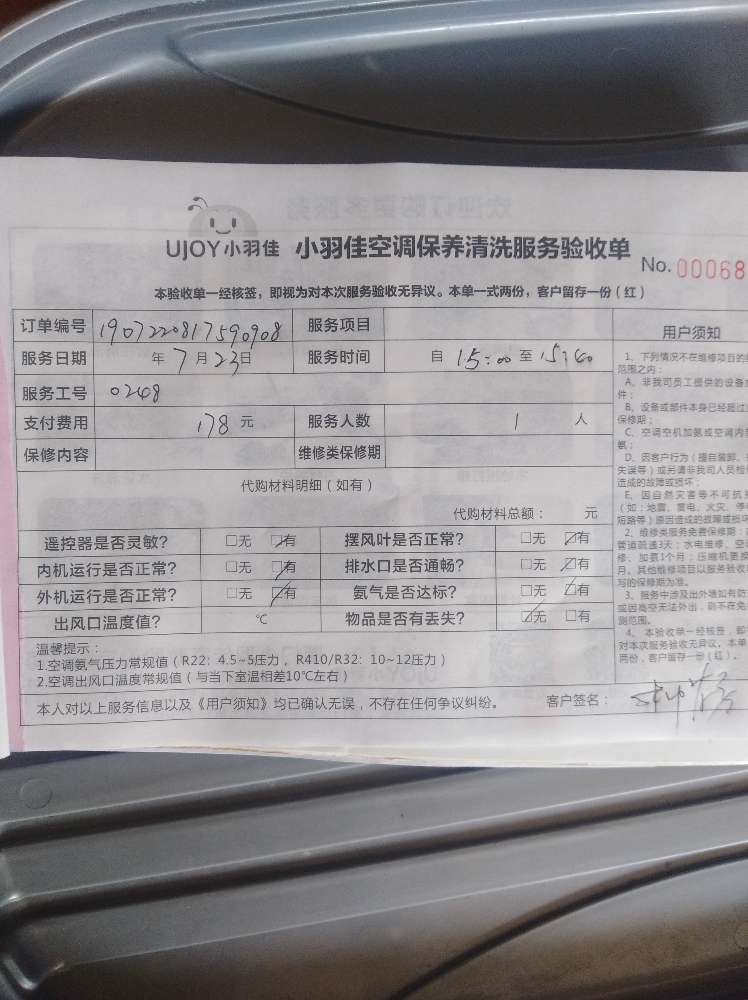 UJOY小羽佳 小羽佳空调保养清洗服务验收单
No. 00068
本验收单一经核签，即视为对本次服务验收无异议。本单一式两份，客户留存一份（红）
订单编号 1907220817590908 服务项目
服务日期 年 7 月 23 日 服务时间 自 15:00 至 15:40
服务工号 0248
支付费用 178 元 服务人数 1 人
保修内容 维修类保修期
代购材料明细（如有）
代购材料总额： 元
遥控器是否灵敏？ □无 ☑有 摆风叶是否正常？ □无 ☑有
内机运行是否正常？ □无 ☑有 排水口是否通畅？ □无 ☑有
外机运行是否正常？ □无 ☑有 氨气是否达标？ □无 ☑有
出风口温度值？ ℃ 物品是否有丢失？ ☑无 □有
温馨提示：
1.空调氨气压力常规值（R22：4.5~5压力，R410/R32：10~12压力）
2.空调出风口温度常规值（与当下室温相差10℃左右）
本人对以上服务信息以及《用户须知》均已确认无误，不存在任何争议纠纷。 客户签名：
用户须知
1、下列情况不在维修项目的
范围之内：
A、非我司员工提供的设备
件；
B、设备或部件本身已经超过
保修期；
C、空调空机加氨或空调内
氨；
D、因客户行为（擅自装卸、
失误等）或另请非我司人员检
造成的故障或损坏；
E、因自然灾害等不可抗
（如：地震、雷电、火灾、停
短路等）原因造成的故障或损坏
2、维修类服务免费保修期：
管道疏通3天；水电维修、空
修、加氨1个月；压缩机更换
月。其他维修项目以服务验收
写的保修期为准。
3、服务中涉及出外墙如有防
或因高空无法外出，则不在免
施范围。
4、本验收单一经核签，即
对本次服务验收无异议。本单
两份，客户留存一份（红）。